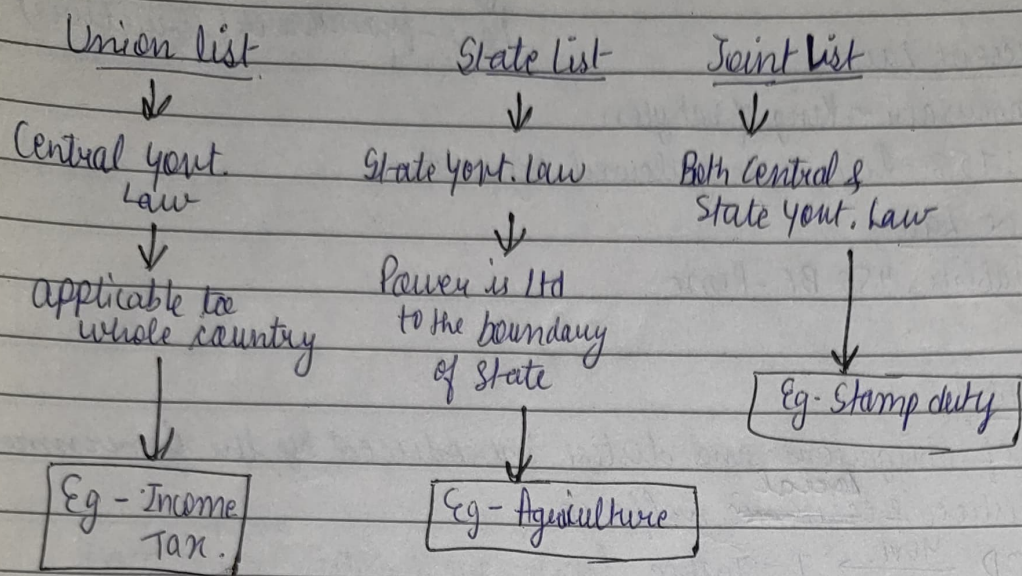 Union list
↓
Central govt.
Law
↓
applicable to
whole country
↓
Eg - Income
Tax.
State List
↓
State govt. Law
↓
Power is Ltd
to the boundary
of State
↓
Eg - Agriculture
Joint List
↓
Both Central &
State govt. Law
↓
Eg - Stamp duty